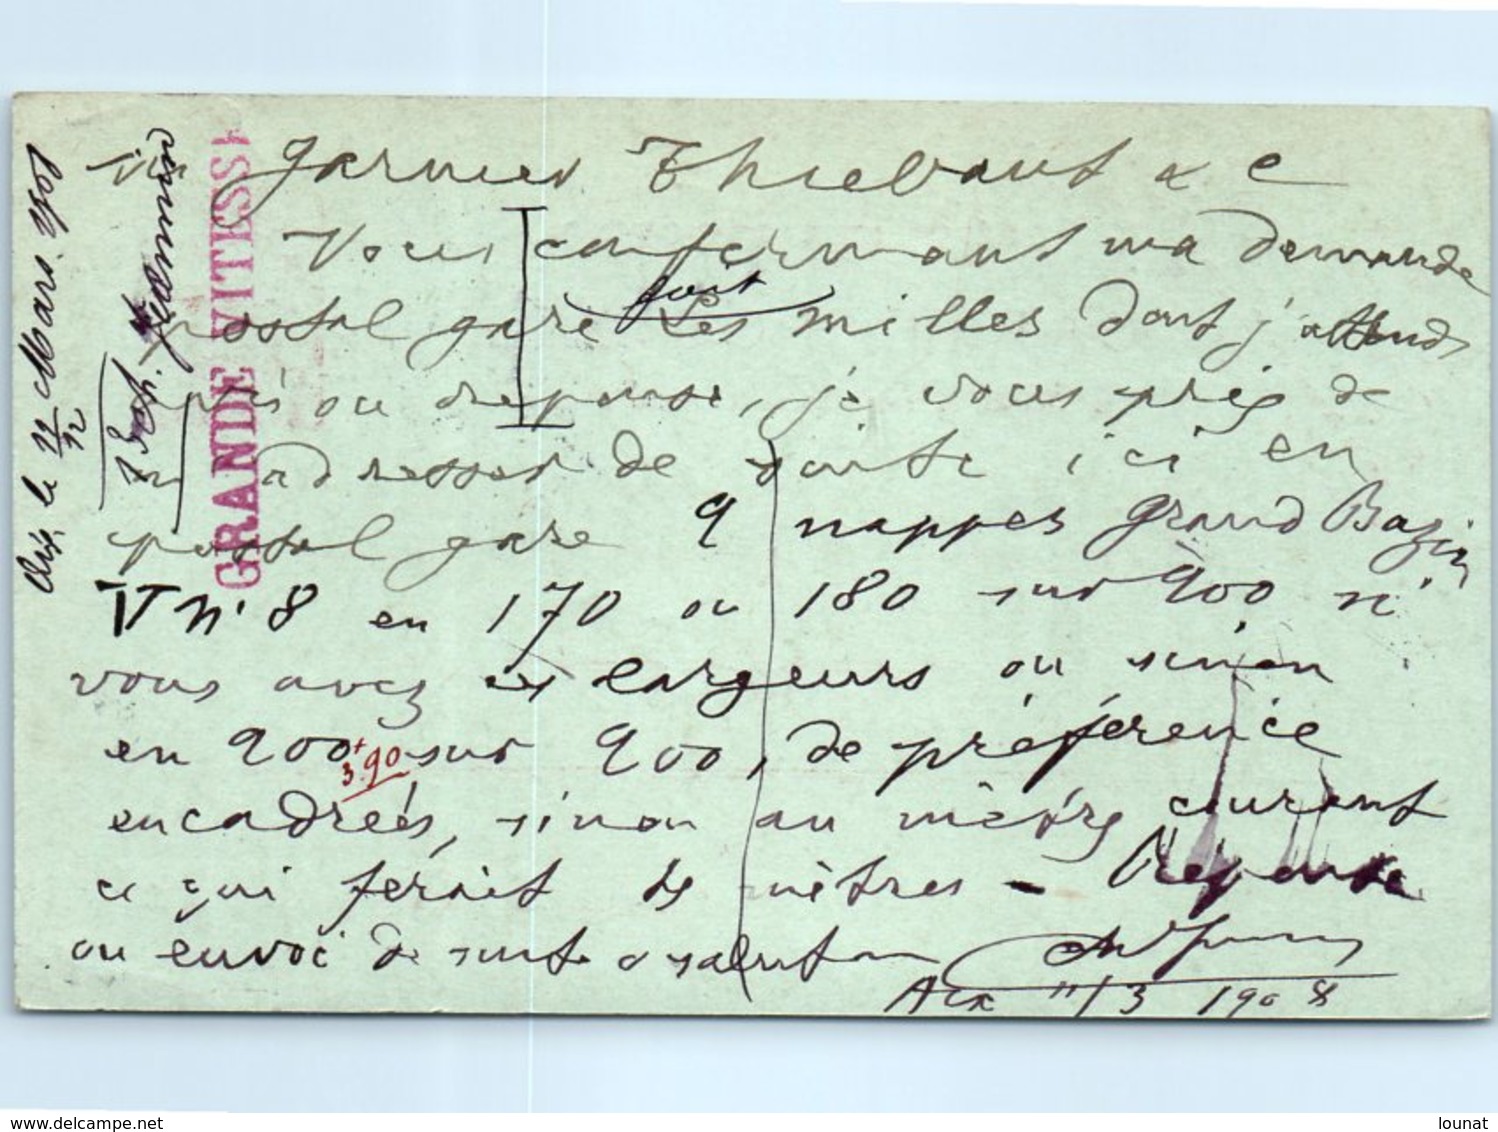 Garnier Thiebaut & C
Vous confirmant ma demande
soit
postal gare Les milles dont j'attends
ou reponse, je vous prie de
adresser de suite ici en
postal gare 9 nappes grand Bazin
V n° 8 en 170 ou 180 sur 900 si
vous avez ces largeurs ou sinon
en 200 sur 900, de préférence
+
3.90
encadrées, sinon au mètre courant
ce qui ferait des mètres - Réponse
ou envoi de suite & salutations
Aix 11/3 1908
Aix, le 11 Mars 1908
12
GRANDE VITESSE